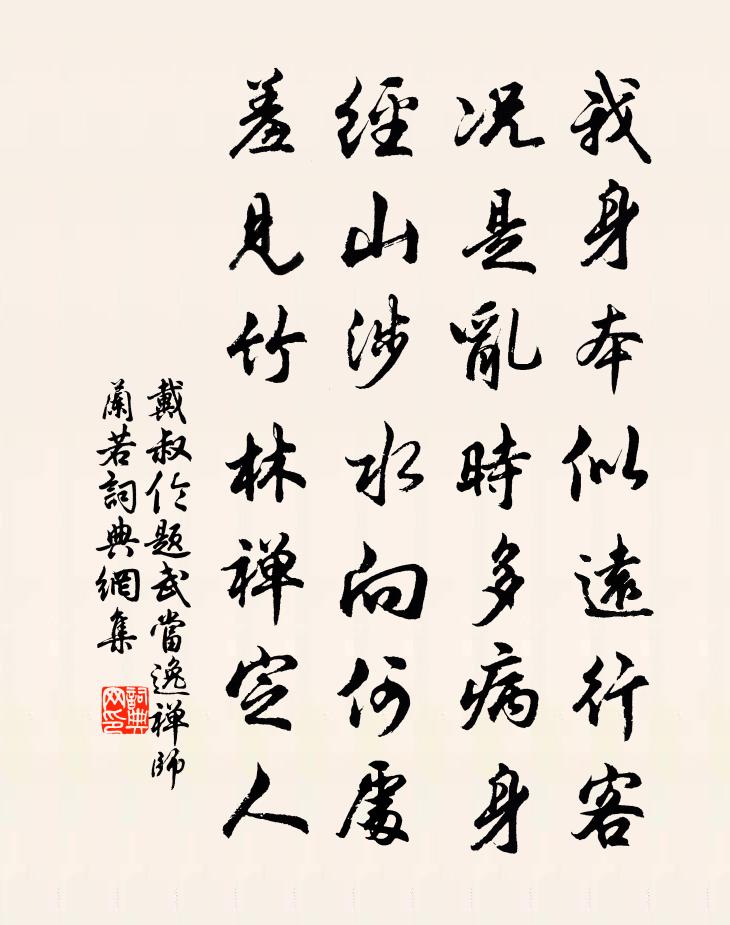 我身本似遠行客
況是亂時多病身
經山涉水向何處
羞見竹林禅定人
戴叔伦題武當逸禅師
蘭若詞典網集
詞典
网印